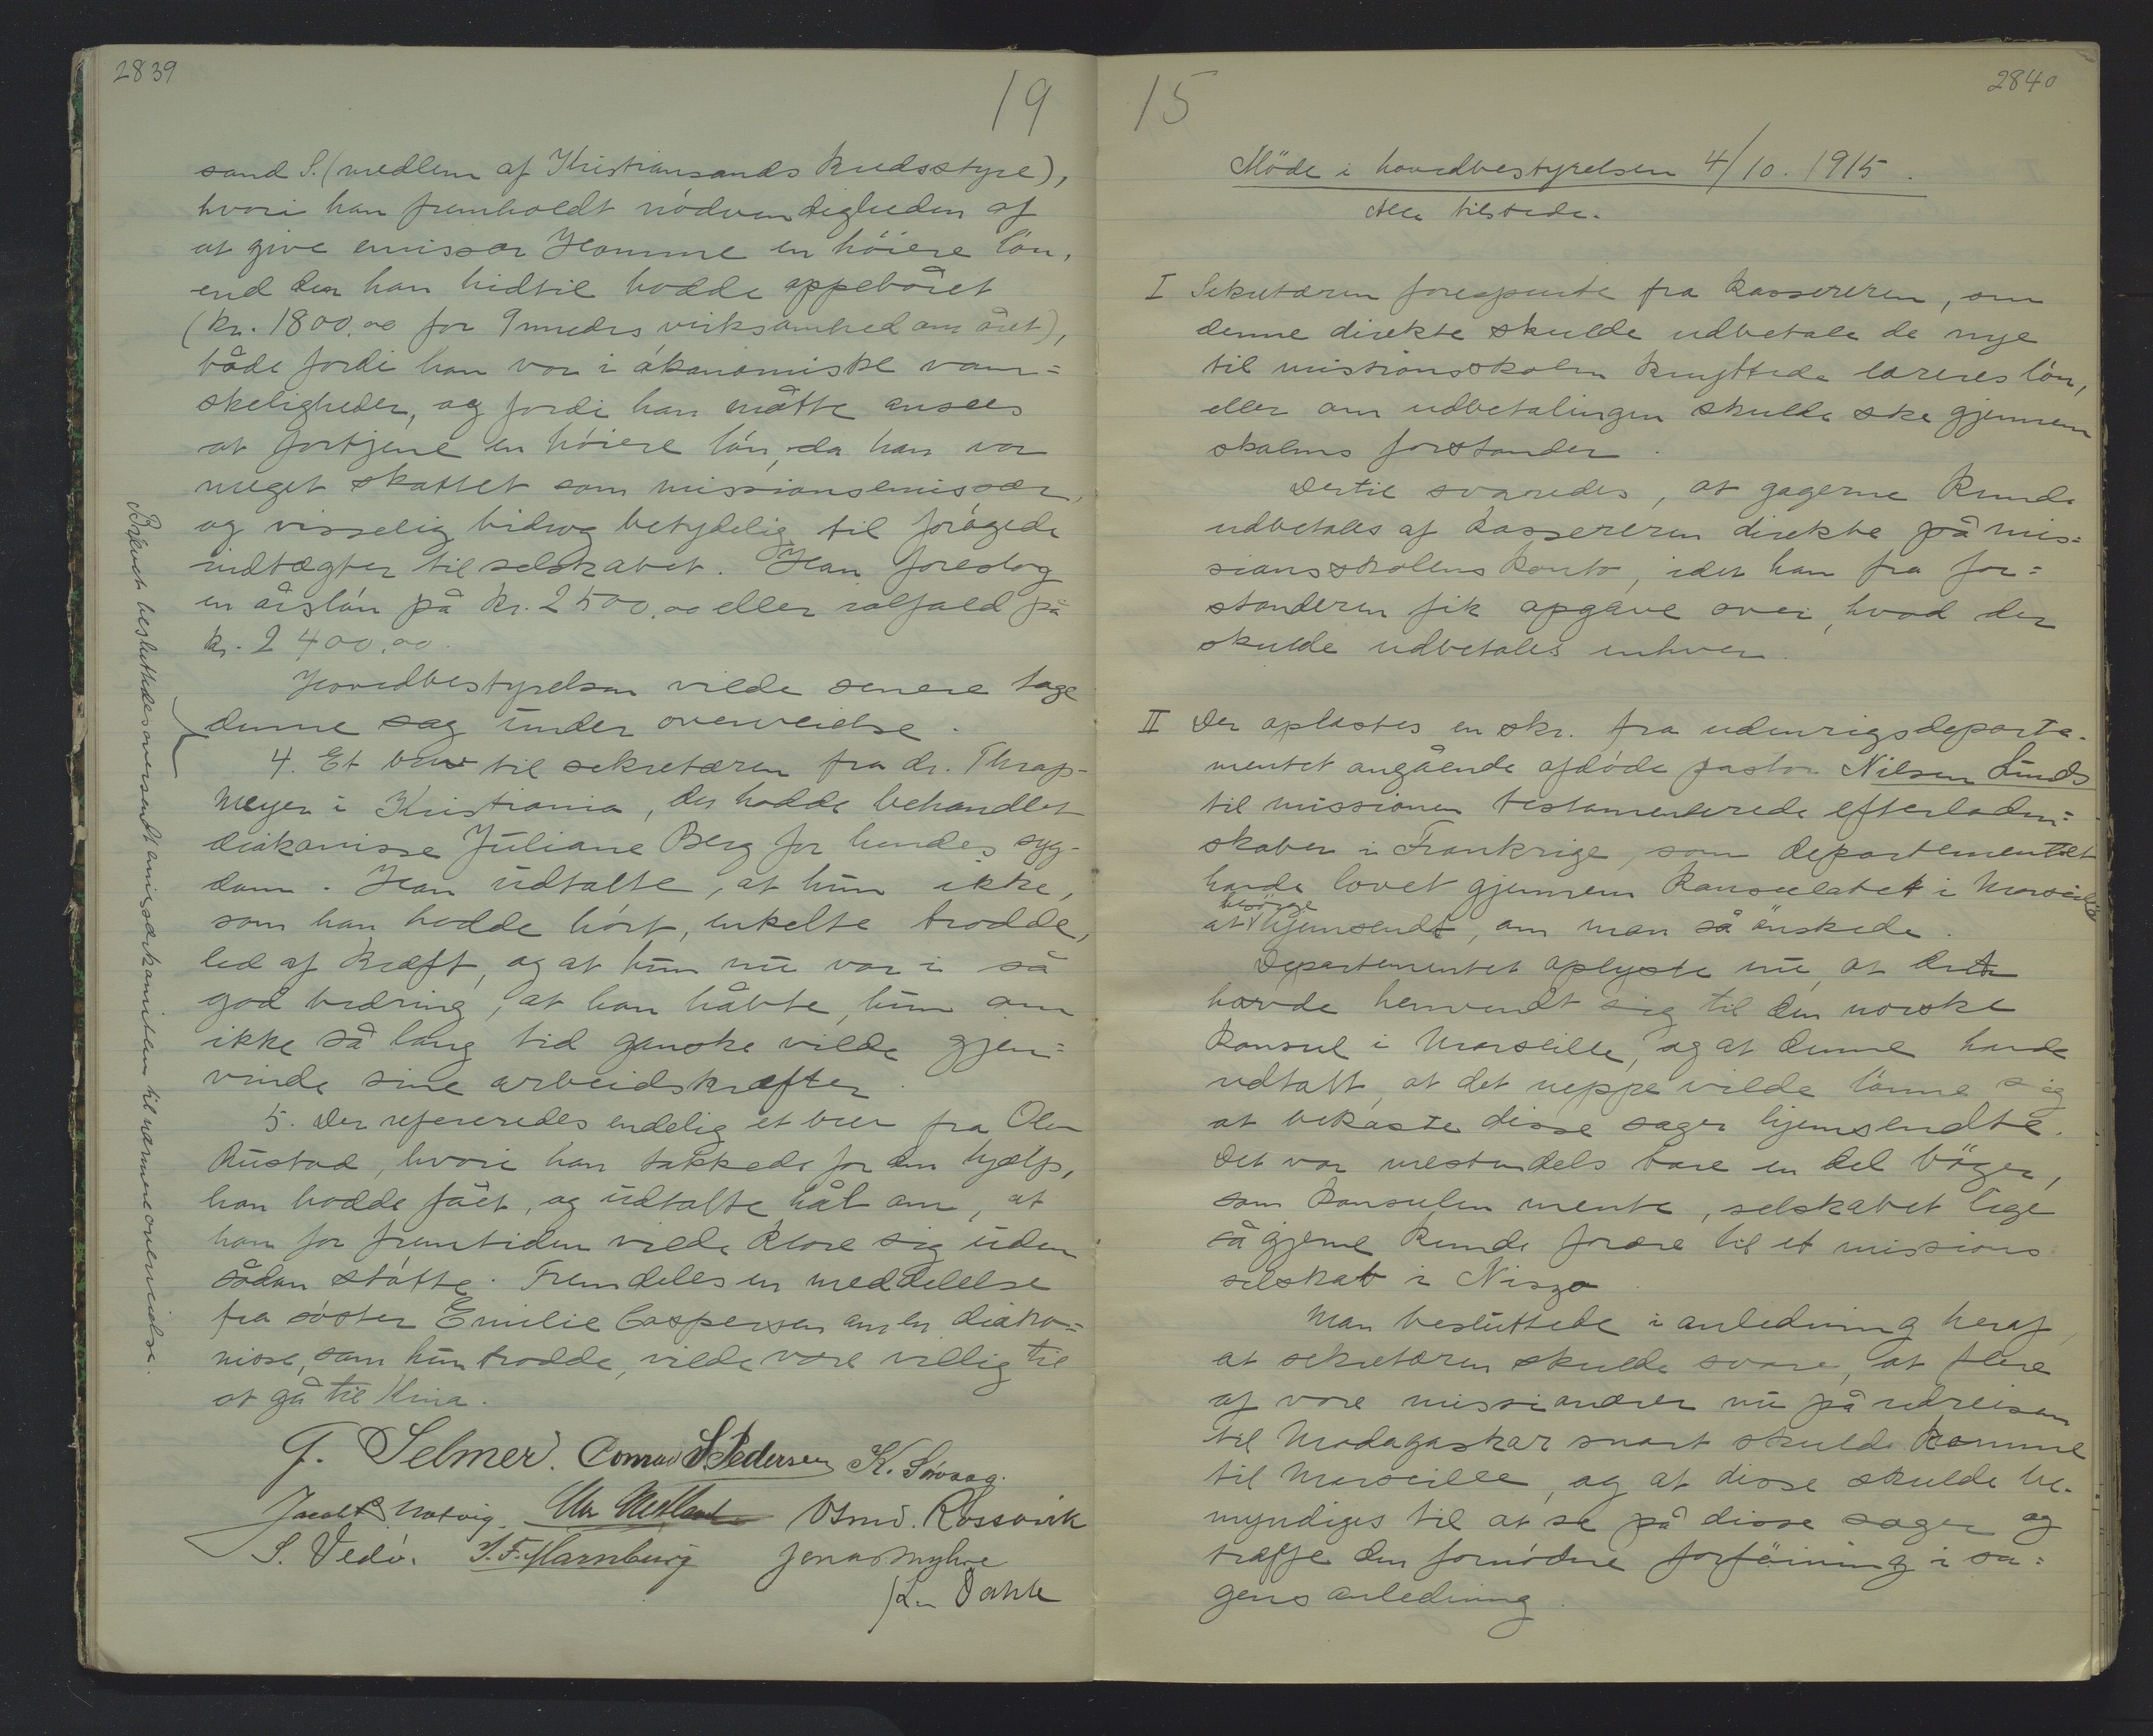 2839
19
sand S. (medlem af Kristiansands kredsstyre),
hvori han fremholdt nödvendigheden af
at give emissær Homme en höiere lön,
end den han hidtil hadde oppebåret
(kr. 1800.00 for 9 mnedrs virksomhed om året),
både fordi han var i ökonomiske van=
skeligheder, og fordi han måtte ansees
at fortjene en höiere lön, da han var
meget skattet som missionsemissær,
og visselig bidrog betydelig til forögede
indtægter til selskabet. Han foreslog
en årslön på kr. 2500.00 eller ialfald på
kr. 2400.00.
Hovedbestyrelsen vilde senere tage
denne sag under overveielse.
4. Et brev til sekretæren fra dr. Thrap-
Meyer i Kristiania, der hadde behandlet
diakonisse Juliane Berg for hendes syg-
dom. Han udtalte, at hun ikke,
som han hadde hört, enkelte trodde,
led af kræft, og at hun nu var i så
god bedring, at han håbte, hun om
ikke så lang tid ganske vilde gjen=
vinde sine arbeidskræfter.
5. Der refereredes endelig et brev fra Olav
Rustad, hvori han takkede for den hjælp,
han hadde fået, og udtalte håb om, at
han for fremtiden vilde klare sig uden
sådan stötte. Fremdeles en meddelelse
fra söster Emilie Caspersen om en diako=
nisse, som hun trodde, vilde være villig til
at gå til Kina.
G. Selmer. Conrad S. Pedersen K. Sövsag.
Jacob Natvig. Chr Meltand Osmd. Rossavik
S. Vedö. S. F. Harnburg Jonas Myhre
Dahle
besluttedes oversendt emissærkomiteen til nærmere overveielse.
15
2840
Möde i hovedbestyrelsen 4/10. 1915.
Alle tilstede.
I Sekretæren forespurte fra kassereren, om
denne direkte skulde udbetale de nye
til missionsskolen knyttede læreres lön,
eller om udbetalingen skulde ske gjennem
skolens forstander.
Dertil svaredes, at gagerne kunde
udbetales af kassereren direkte på mis=
sionsskolens konto, idet han fra for=
standeren fik opgave over, hvad der
skulde udbetales enhver.
II Der oplæstes en skr. fra udenrigsdeparte-
mentet angående afdöde pastor Nilsen Lunds
til missionen testamenterede efterladen=
skaber i Frankrige, som departementet
havde lovet gjennem konsulatet i Marseille
besörge
at hjemsendt, om man så önskede.
Departementet oplyste nu, at det
havde henvendt sig til den norske
konsul i Marseille, og at denne havde
udtalt, at det neppe vilde lönne sig
at bekoste disse sager hjemsendte.
Det var mestendels bare en del böger,
som konsulen mente, selskabet lige
så gjerne kunde forære til et missions
selskab i Nizza.
Man besluttede i anledning heraf,
at sekretæren skulde svare, at flere
af vore missionærer nu på udreisen
til Madagaskar snart skulde komme
til Marseille, og at disse skulde be-
myndiges til at se på disse sager og
træffe den fornödne forföining i sa=
gens anledning.